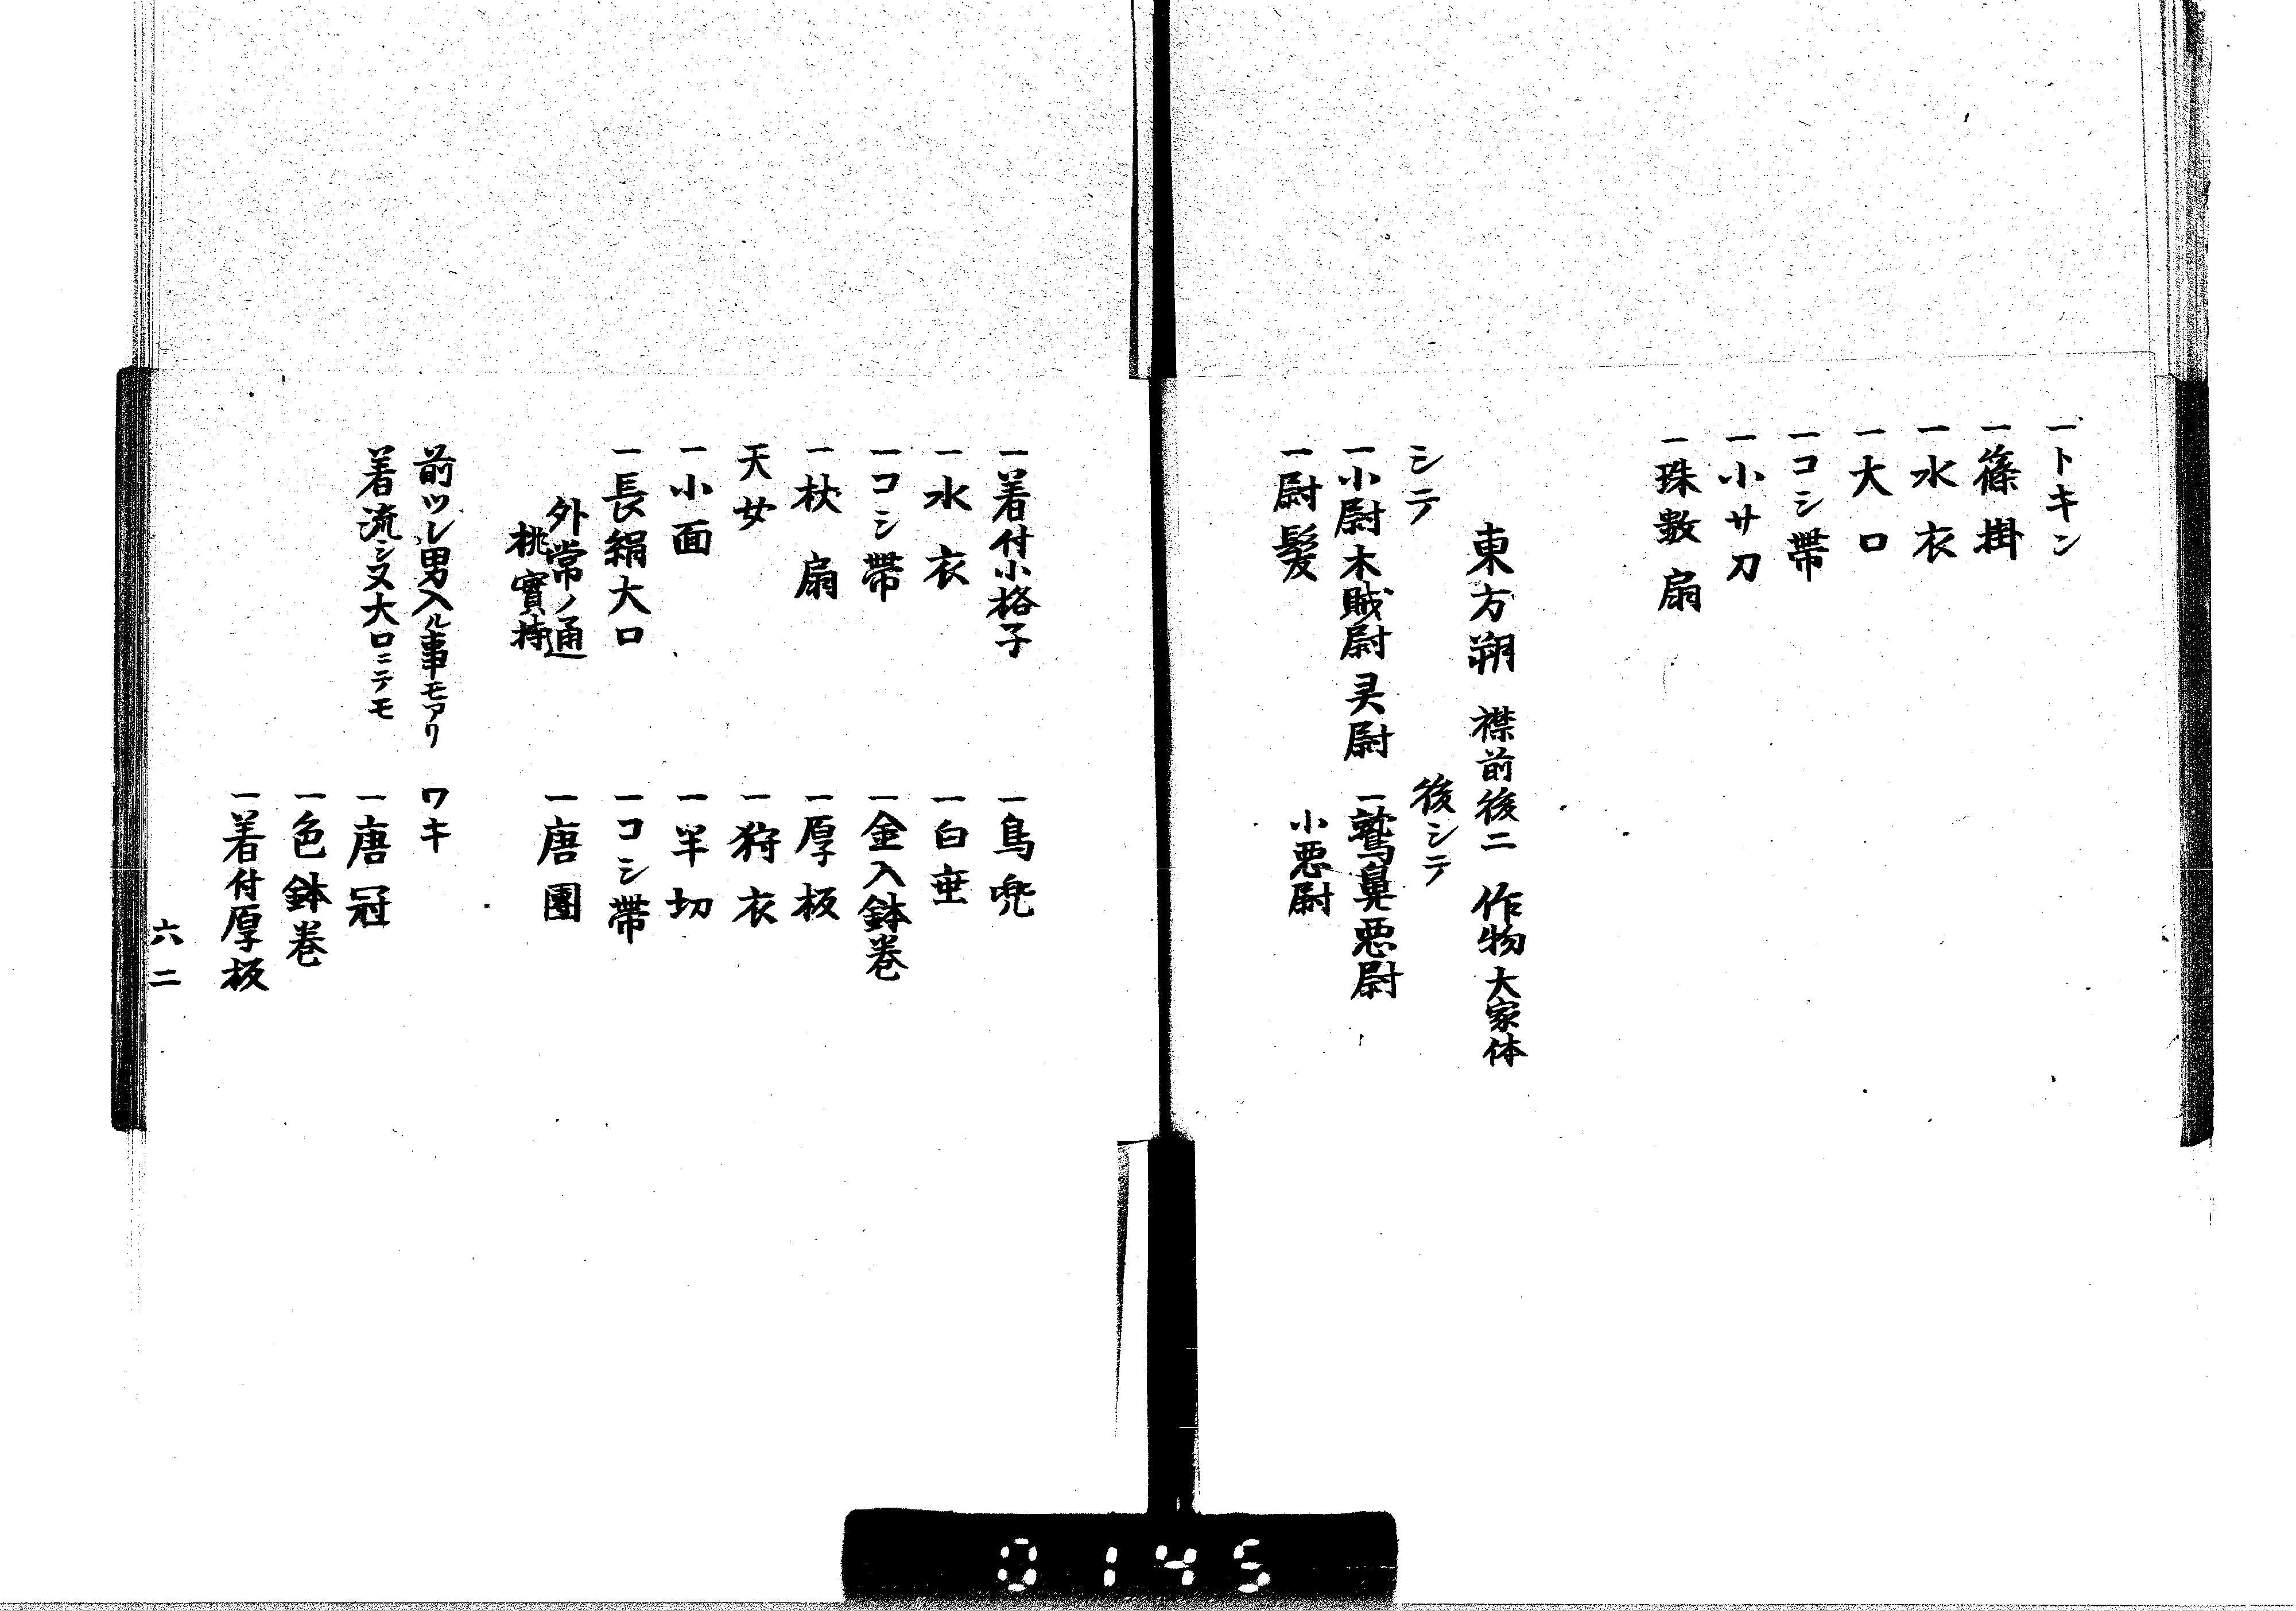 一トキン
一篠掛
一水衣
一大口
一コシ帯
一小サ刀
一珠数扇
東方朔 襟前後ニ 作物大家体
シテ
一小尉木賊尉 㚑尉
一尉髪
後シテ
一鷲鼻悪尉
小悪尉
一着付小格子
一水衣
一コシ帯
一杖 扇
天女
一小面
一長絹大口
外常ノ通
桃實持
一鳥兜
一白垂
一金入鉢巻
一厚板
一狩衣
一半切
一コシ帯
一唐團
前ツレ男入ル事モアリ
着流シ又大口ニテモ
ワキ
一唐冠
一色鉢巻
一着付厚板
六二
0145